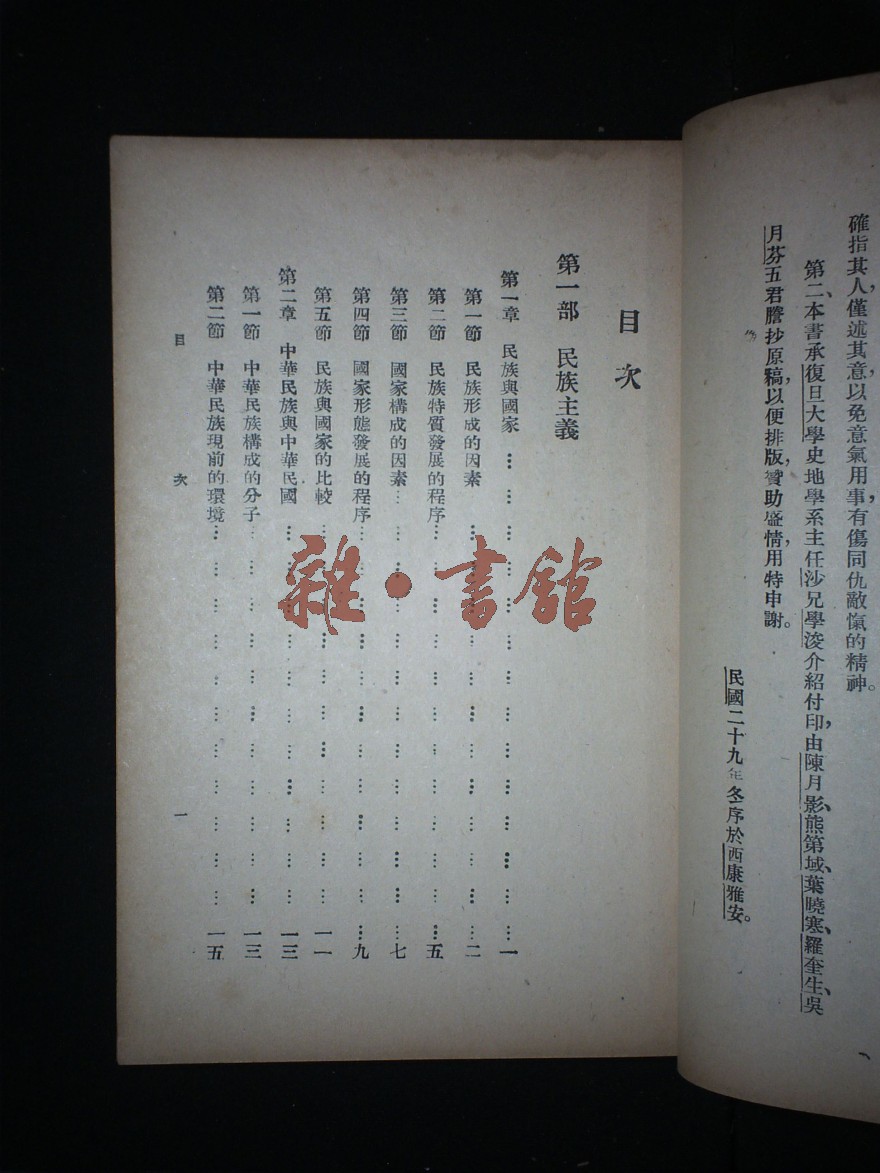 確指其人,僅述其意,以免意氣用事,有傷同仇敵愾的精神。
第二、本書承復旦大學史地學系主任沙兄學浚介紹付印,由陳月影、熊第域、葉曉寒、羅奎生、吳
月芬五君謄抄原稿,以便排版,贊助盛情,用特申謝。
民國二十九年冬序於西康雅安。
目次
第一部 民族主義
第一章 民族與國家…………………………一
第一節 民族形成的因素…………………………二
第二節 民族特質發展的程序…………………………五
第三節 國家構成的因素…………………………七
第四節 國家形態發展的程序…………………………九
第五節 民族與國家的比較…………………………一一
第二章 中華民族與中華民國…………………………一三
第一節 中華民族構成的分子…………………………一三
第二節 中華民族現前的環境…………………………一五
目次 一
雜·書館